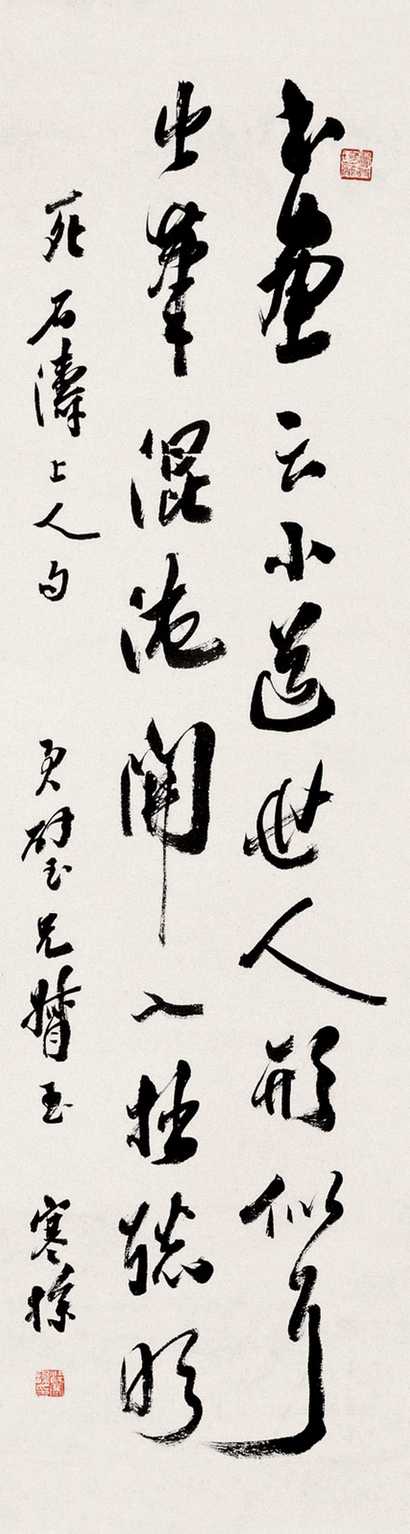 書畫云小道世人形似耳
出筆混沌開入拙聰明
死 石濤上人句 兄 寒操